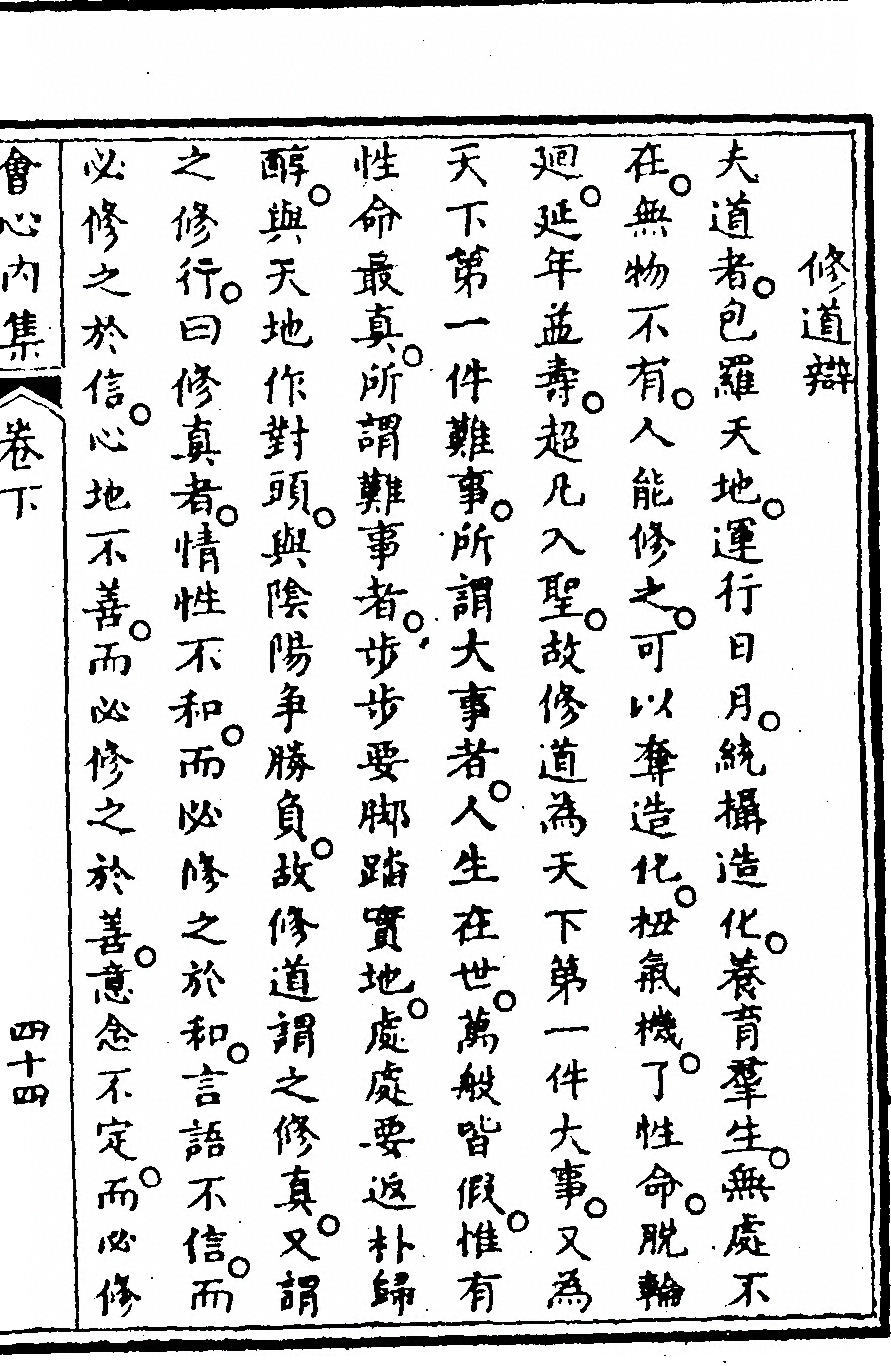 修道辯
夫道者。包羅天地。運行日月。統攝造化。養育羣生。無處不
在。無物不有。人能修之。可以奪造化。扭氣機。了性命。脫輪
廻。延年益壽。超凡入聖。故修道為天下第一件大事。又為
天下第一件難事。所謂大事者。人生在世。萬般皆假。惟有
性命最真。所謂難事者。步步要脚踏實地。處處要返朴歸
醇。與天地作對頭。與陰陽爭勝負。故修道謂之修真。又謂
之修行。曰修真者。情性不和。而必修之於和。言語不信。而
必修之於信。心地不善。而必修之於善。意念不定。而必修
會心內集 卷下 四十四